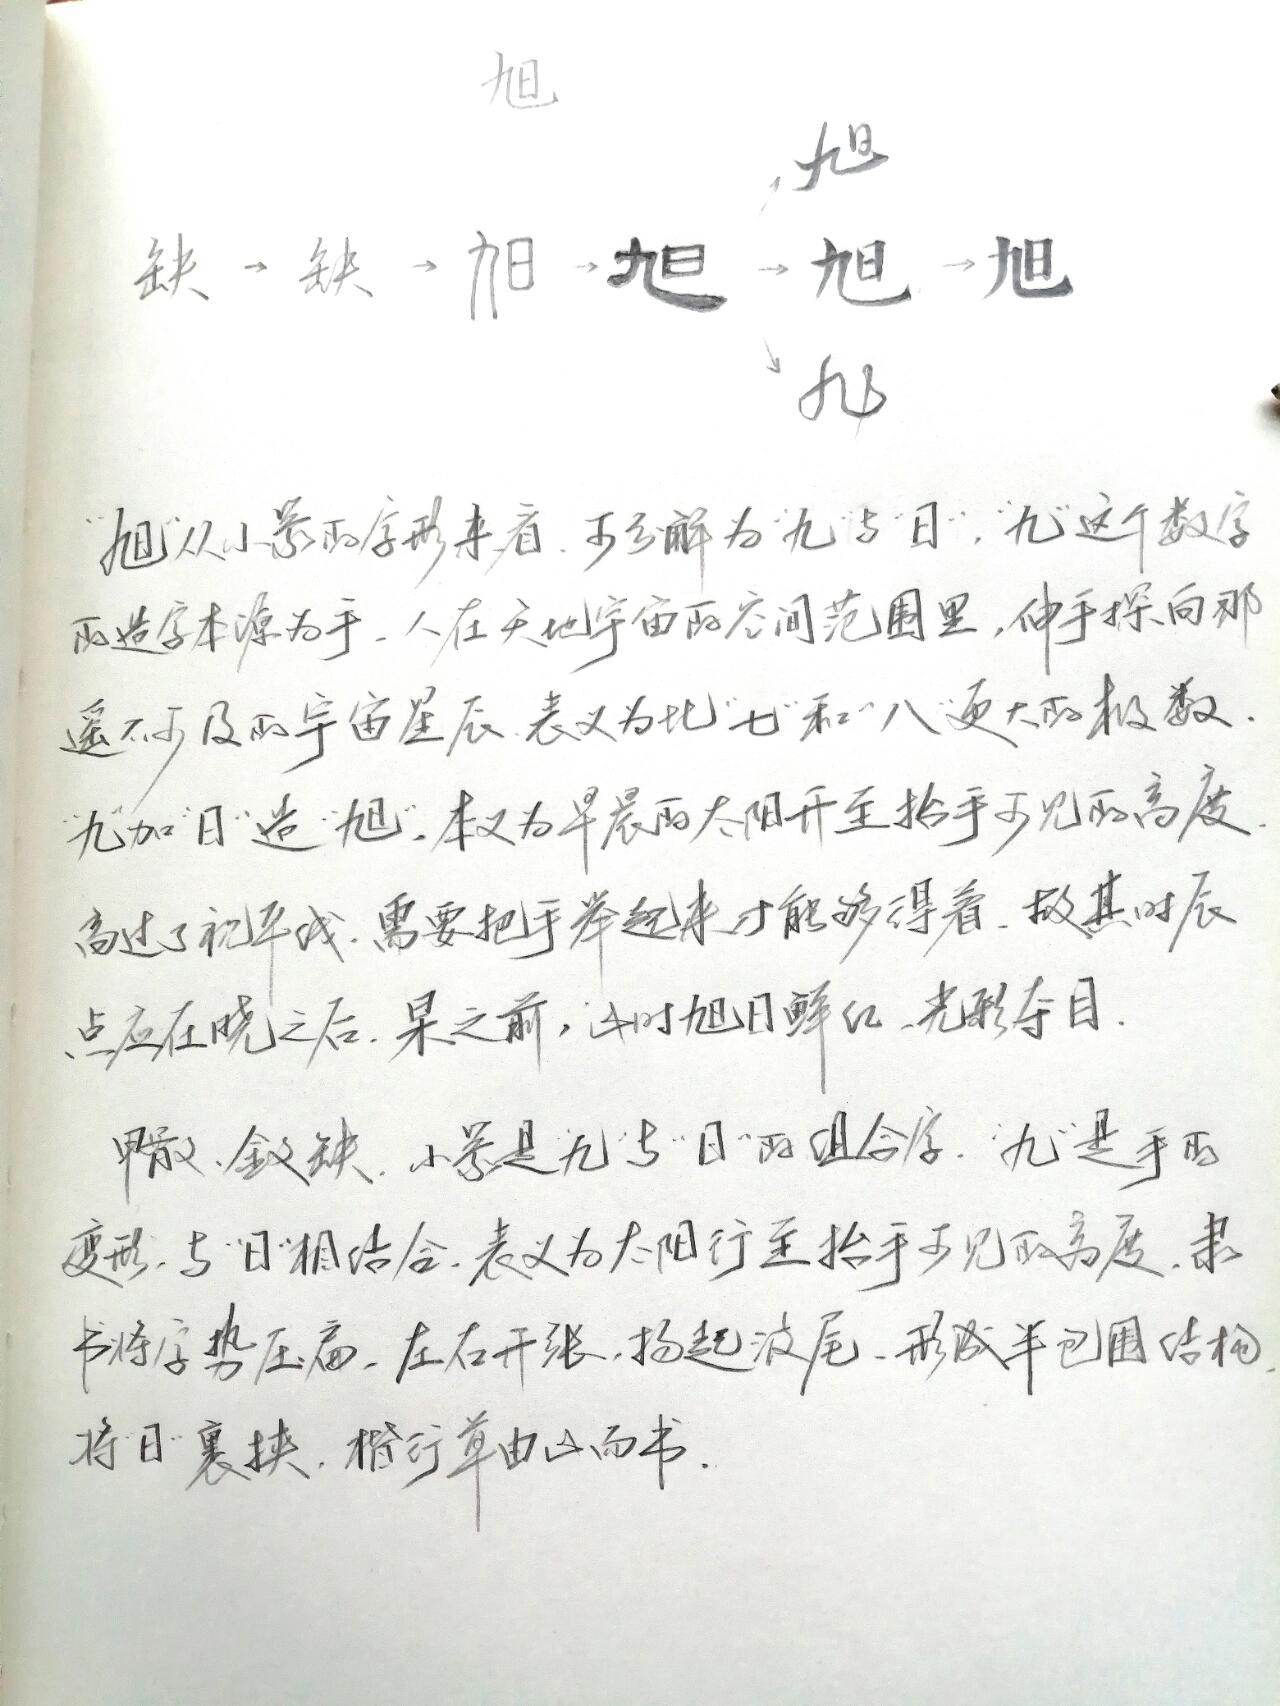 旭
旭
缺→缺→旭→旭→旭→旭
旭
"旭"从小篆的字形来看，可分解为"九"与"日"，"九"这个数字
的造字本源为手，人在天地宇宙的空间范围里，伸手探向那
遥不可及的宇宙星辰，表义为比"七"和"八"更大的极数。
"九"加"日"造"旭"，本义为早晨的太阳升至抬手可见的高度，
高过了视平线，需要把手举起来才能够得着，故其时辰
点应在晓之后，杲之前，此时旭日鲜红，光彩夺目。
甲骨文、金文缺，小篆是"九"与"日"的组合字，"九"是手的
变形，与"日"相结合，表义为太阳行至抬手可见的高度，隶
书将字势压扁，左右开张，扬起波尾，形成半包围结构，
将"日"裹挟，楷行草由此而书。